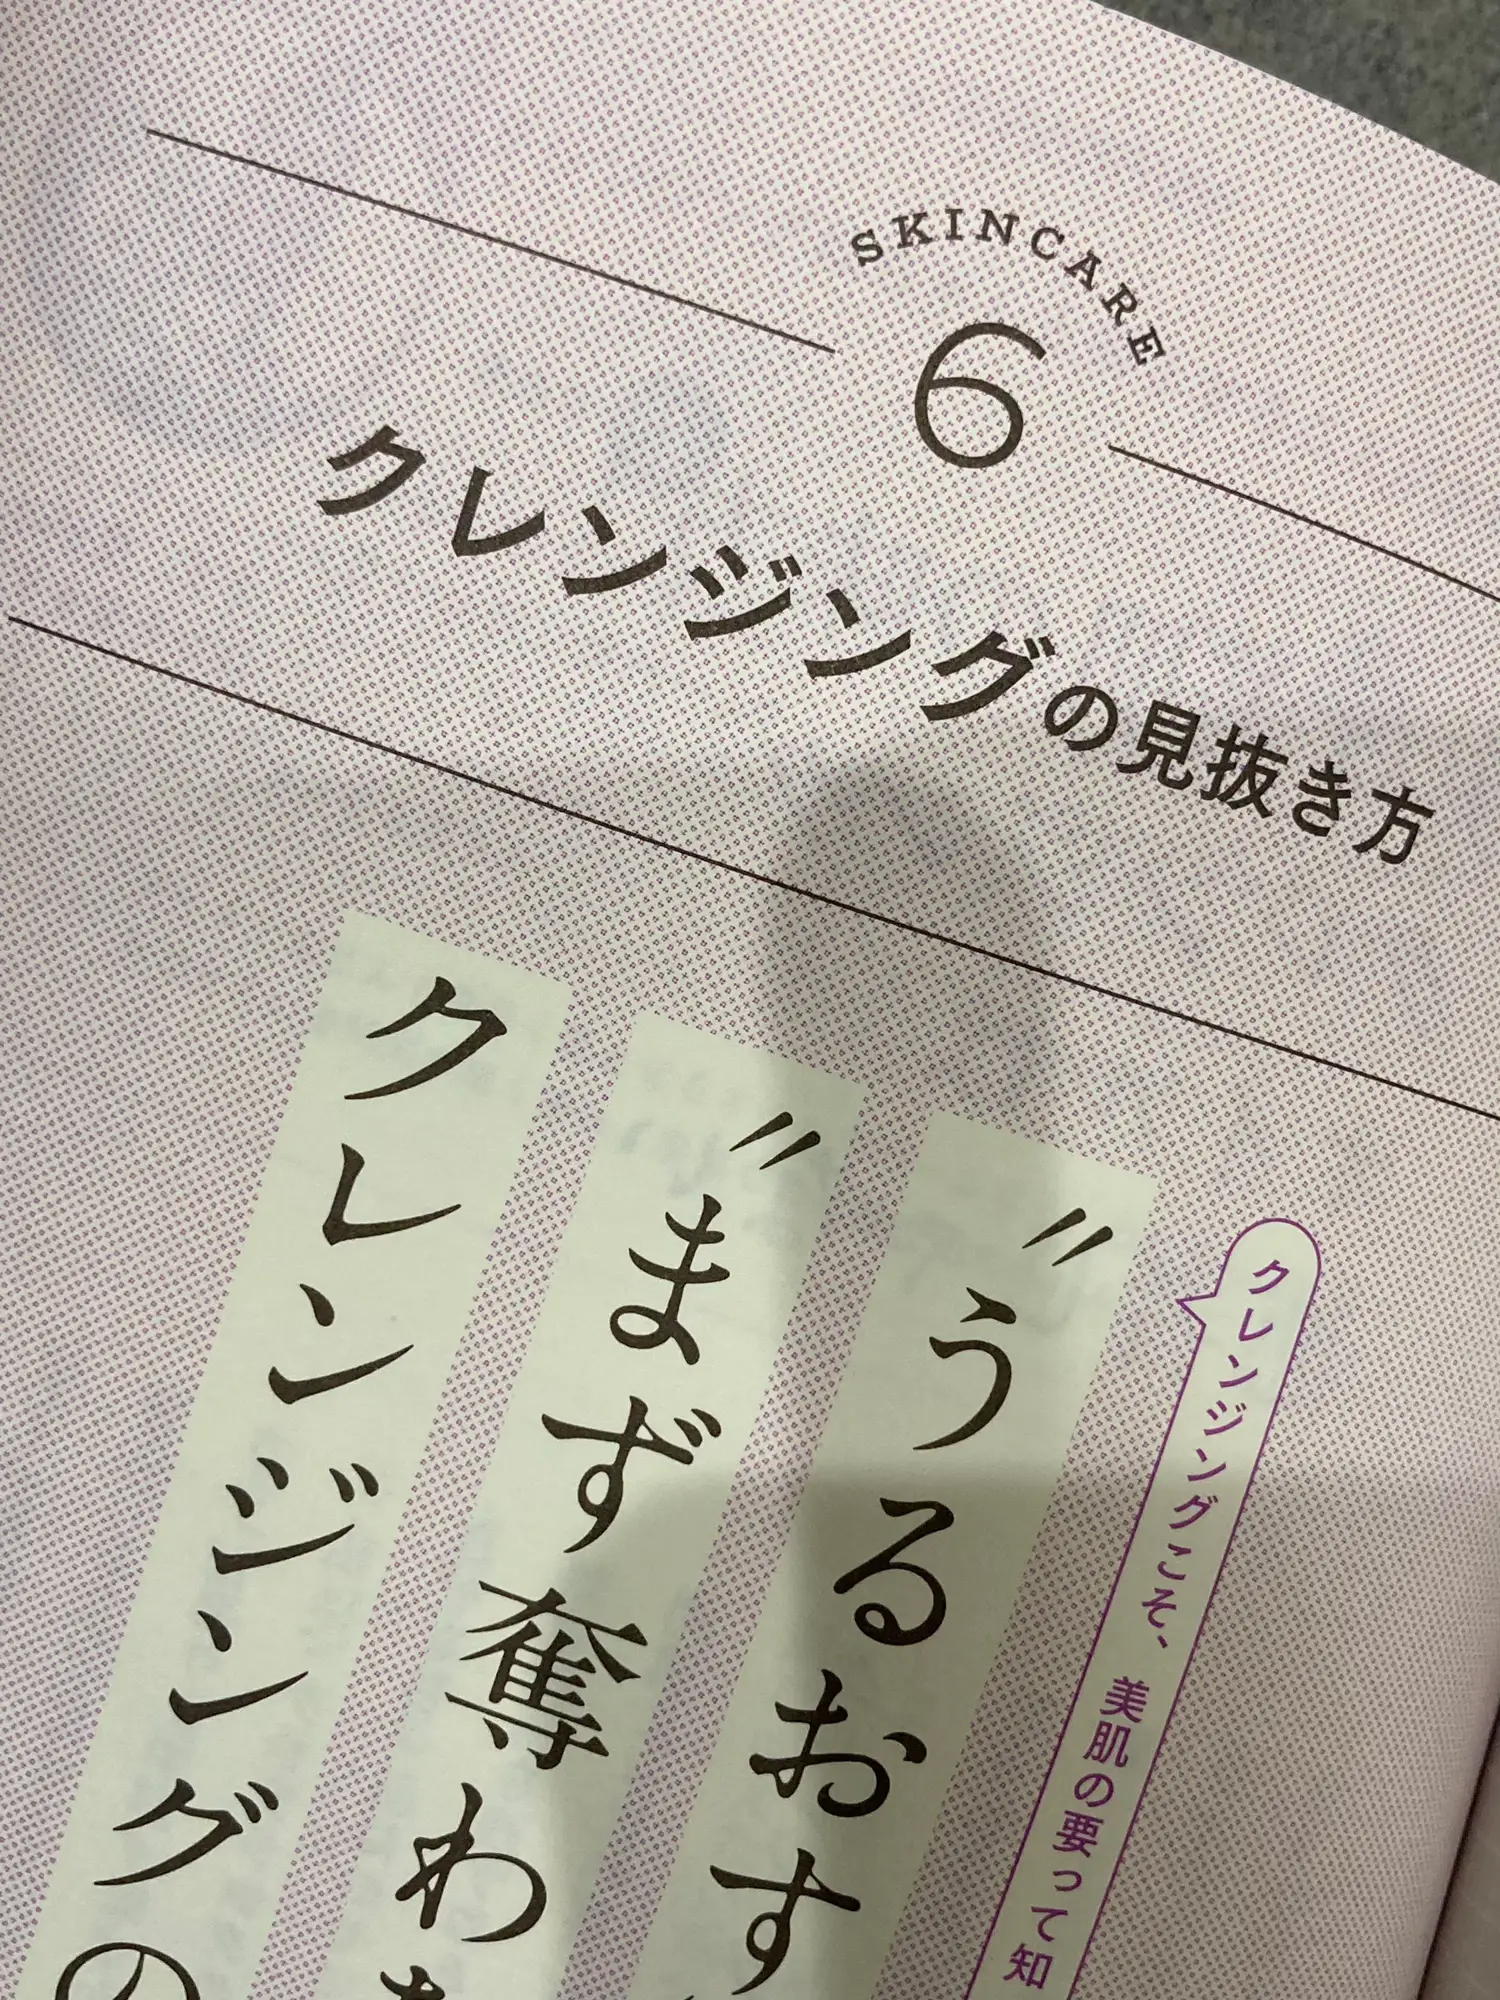 SKINCARE
6
クレンジングの見抜き方
クレンジングこそ、美肌の要って知
〝うるおす
〝まず奪わ
クレンジングの